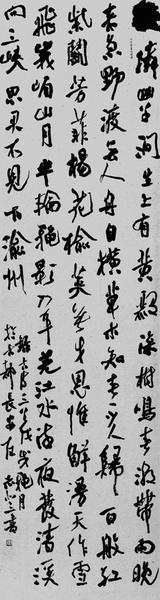 憐幽草澗生上有黃鸝深樹鳴春潮帶雨晚
來急野渡無人舟自橫草木知春不久歸百般紅
紫鬭芳菲楊花榆莢無才思惟解漫天作雪
飛峨嵋山月半輪穐影入平羌江水流夜發清溪
向三峽思君不見下渝州